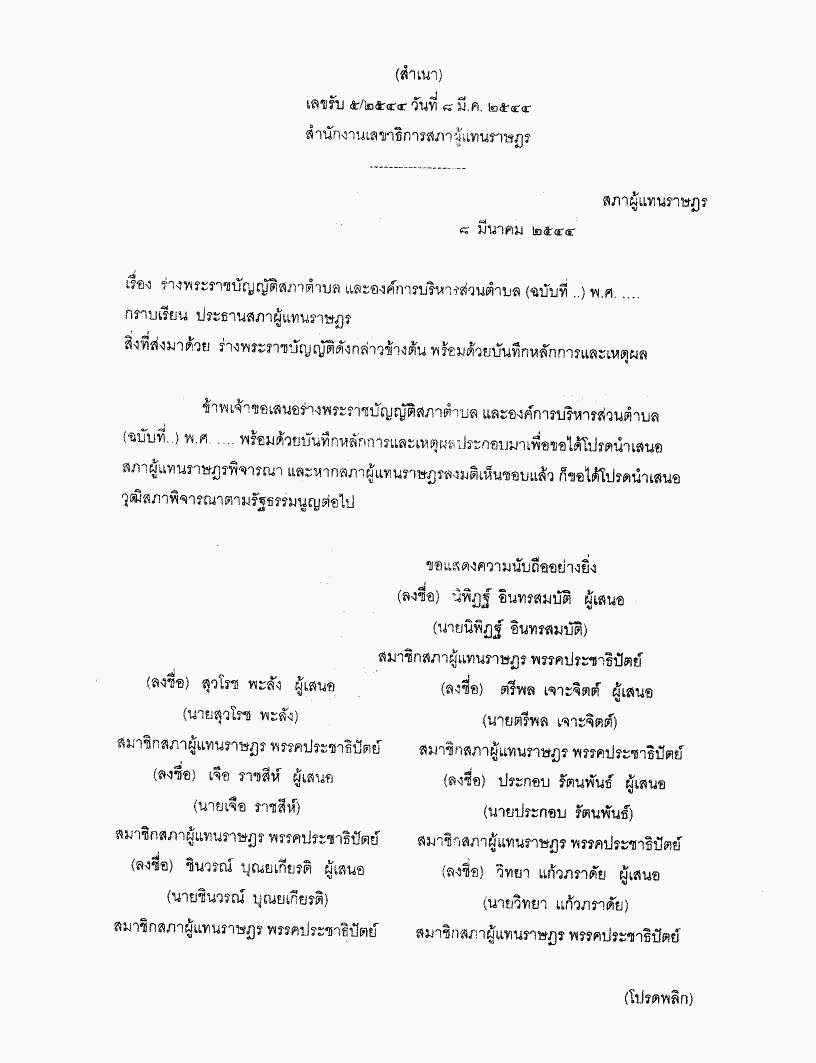 (สำเนา)
เลขรับ ๕/๒๕๔๔ วันที่ ๘ มี.ค. ๒๕๔๔
สำนักงานเลขาธิการสภาผู้แทนราษฎร
สภาผู้แทนราษฎร
๘ มีนาคม ๒๕๔๔
เรื่อง ร่างพระราชบัญญัติสภาตำบล และองค์การบริหารส่วนตำบล (ฉบับที่ ..) พ.ศ. ....
กราบเรียน ประธานสภาผู้แทนราษฎร
สิ่งที่ส่งมาด้วย ร่างพระราชบัญญัติดังกล่าวข้างต้น พร้อมด้วยบันทึกหลักการและเหตุผล
ข้าพเจ้าขอเสนอร่างพระราชบัญญัติสภาตำบล และองค์การบริหารส่วนตำบล
(ฉบับที่..) พ.ศ. .... พร้อมด้วยบันทึกหลักการและเหตุผลประกอบมาเพื่อขอได้โปรดนำเสนอ
สภาผู้แทนราษฎรพิจารณา และหากสภาผู้แทนราษฎรลงมติเห็นชอบแล้ว ก็ขอได้โปรดนำเสนอ
วุฒิสภาพิจารณาตามรัฐธรรมนูญต่อไป
ขอแสดงความนับถืออย่างยิ่ง
(ลงชื่อ) นิพิฏฐ์ อินทรสมบัติ ผู้เสนอ
(นายนิพิฏฐ์ อินทรสมบัติ)
สมาชิกสภาผู้แทนราษฎร พรรคประชาธิปัตย์
(ลงชื่อ) สุวโรช พะลัง ผู้เสนอ
(นายสุวโรช พะลัง)
สมาชิกสภาผู้แทนราษฎร พรรคประชาธิปัตย์
(ลงชื่อ) ตรีพล เจาะจิตต์ ผู้เสนอ
(นายตรีพล เจาะจิตต์)
สมาชิกสภาผู้แทนราษฎร พรรคประชาธิปัตย์
(ลงชื่อ) เจือ ราชสีห์ ผู้เสนอ
(นายเจือ ราชสีห์)
สมาชิกสภาผู้แทนราษฎร พรรคประชาธิปัตย์
(ลงชื่อ) ประกอบ รัตนพันธ์ ผู้เสนอ
(นายประกอบ รัตนพันธ์)
สมาชิกสภาผู้แทนราษฎร พรรคประชาธิปัตย์
(ลงชื่อ) ชินวรณ์ บุณยเกียรติ ผู้เสนอ
(นายชินวรณ์ บุณยเกียรติ)
สมาชิกสภาผู้แทนราษฎร พรรคประชาธิปัตย์
(ลงชื่อ) วิทยา แก้วภราดัย ผู้เสนอ
(นายวิทยา แก้วภราดัย)
สมาชิกสภาผู้แทนราษฎร พรรคประชาธิปัตย์
(โปรดพลิก)